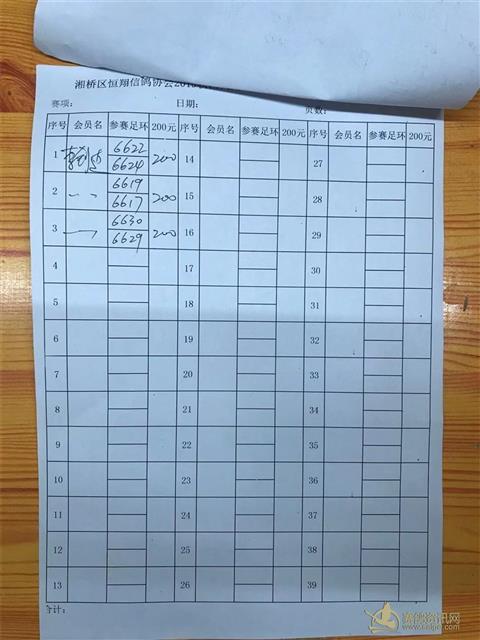 湘桥区恒翔信鸽协会201
赛项： 日期： 页数：
序号 会员名 参赛足环 200元 序号 会员名 参赛足环 200元 序号 会员名 参赛足环 200元
1 6622 6624 200 14 27
2 6619 6617 200 15 28
3 6630 6629 200 16 29
4 17 30
5 18 31
6 19 32
7 20 33
8 21 34
9 22 35
10 23 36
11 24 37
12 25 38
13 26 39
合计：
赛鸽资讯网